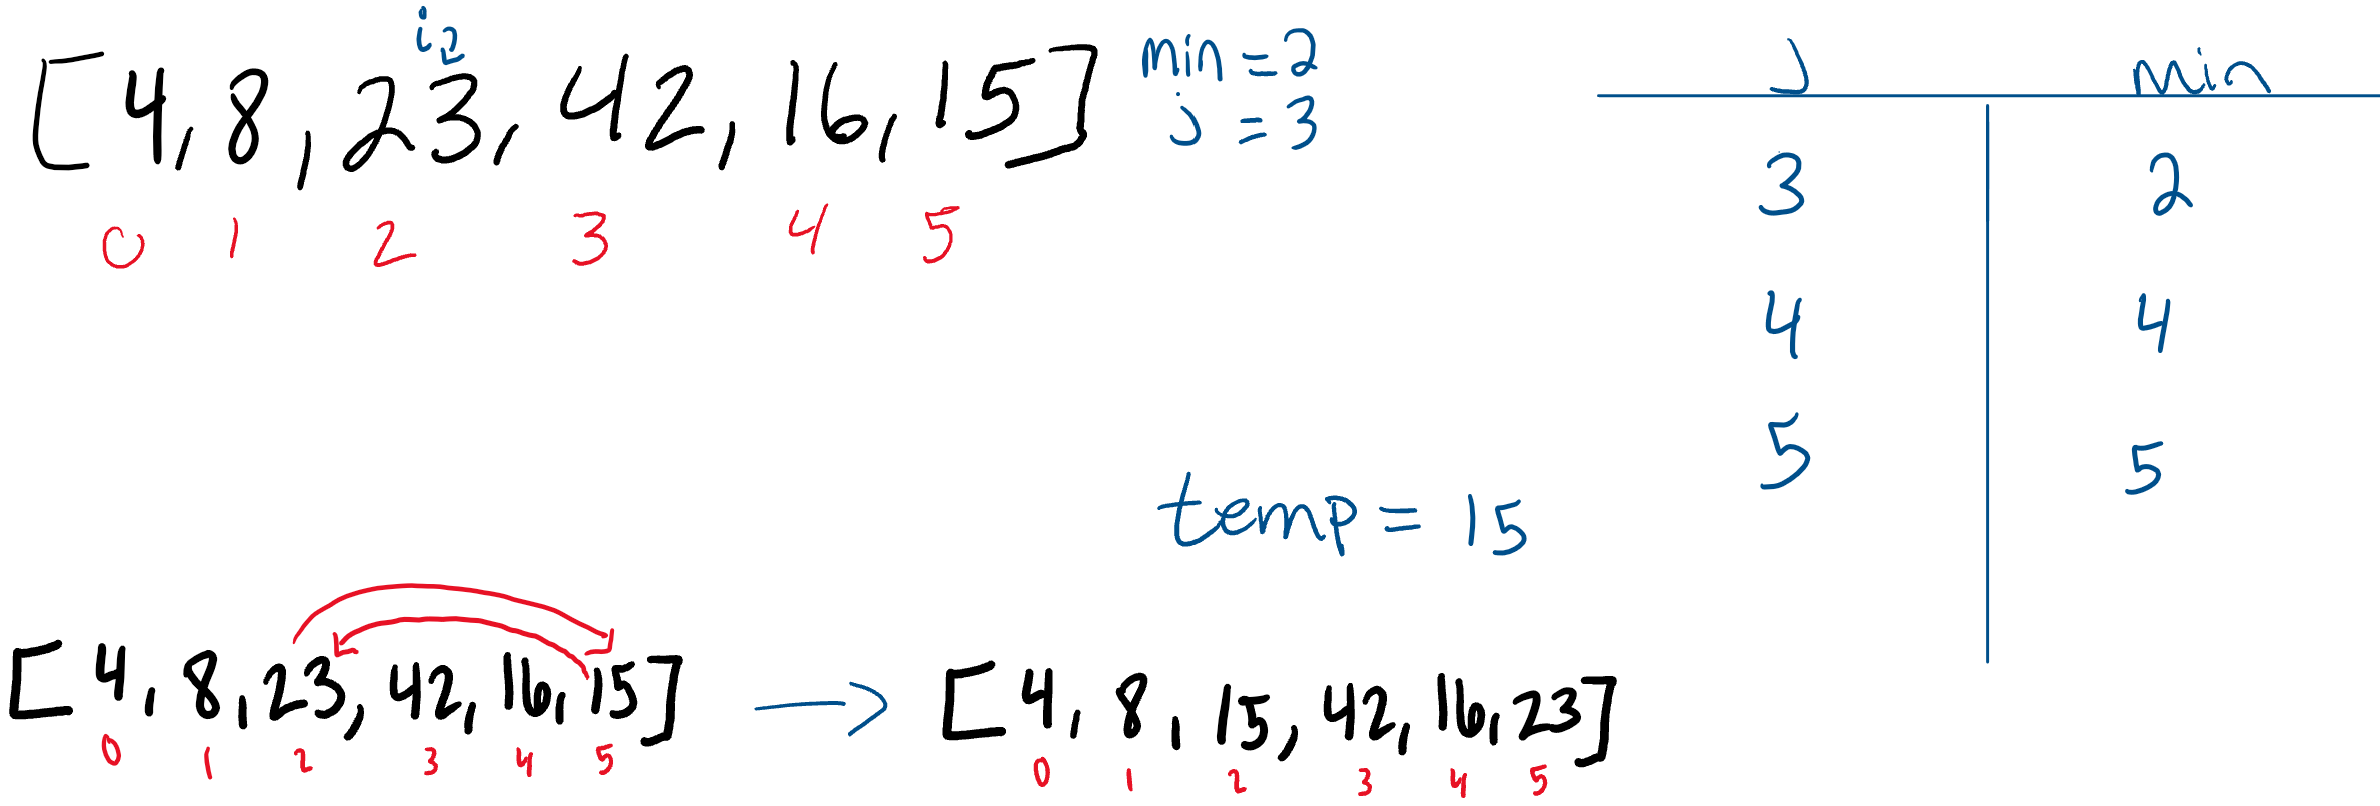 i
[4, 8, 23, 42, 16, 15]
0 1 2 3 4 5
min = 2
j = 3
J min
3 2
4 4
5 5
temp = 15
[4, 8, 23, 42, 16, 15] → [4, 8, 15, 42, 16, 23]
0 1 2 3 4 5 0 1 2 3 4 5